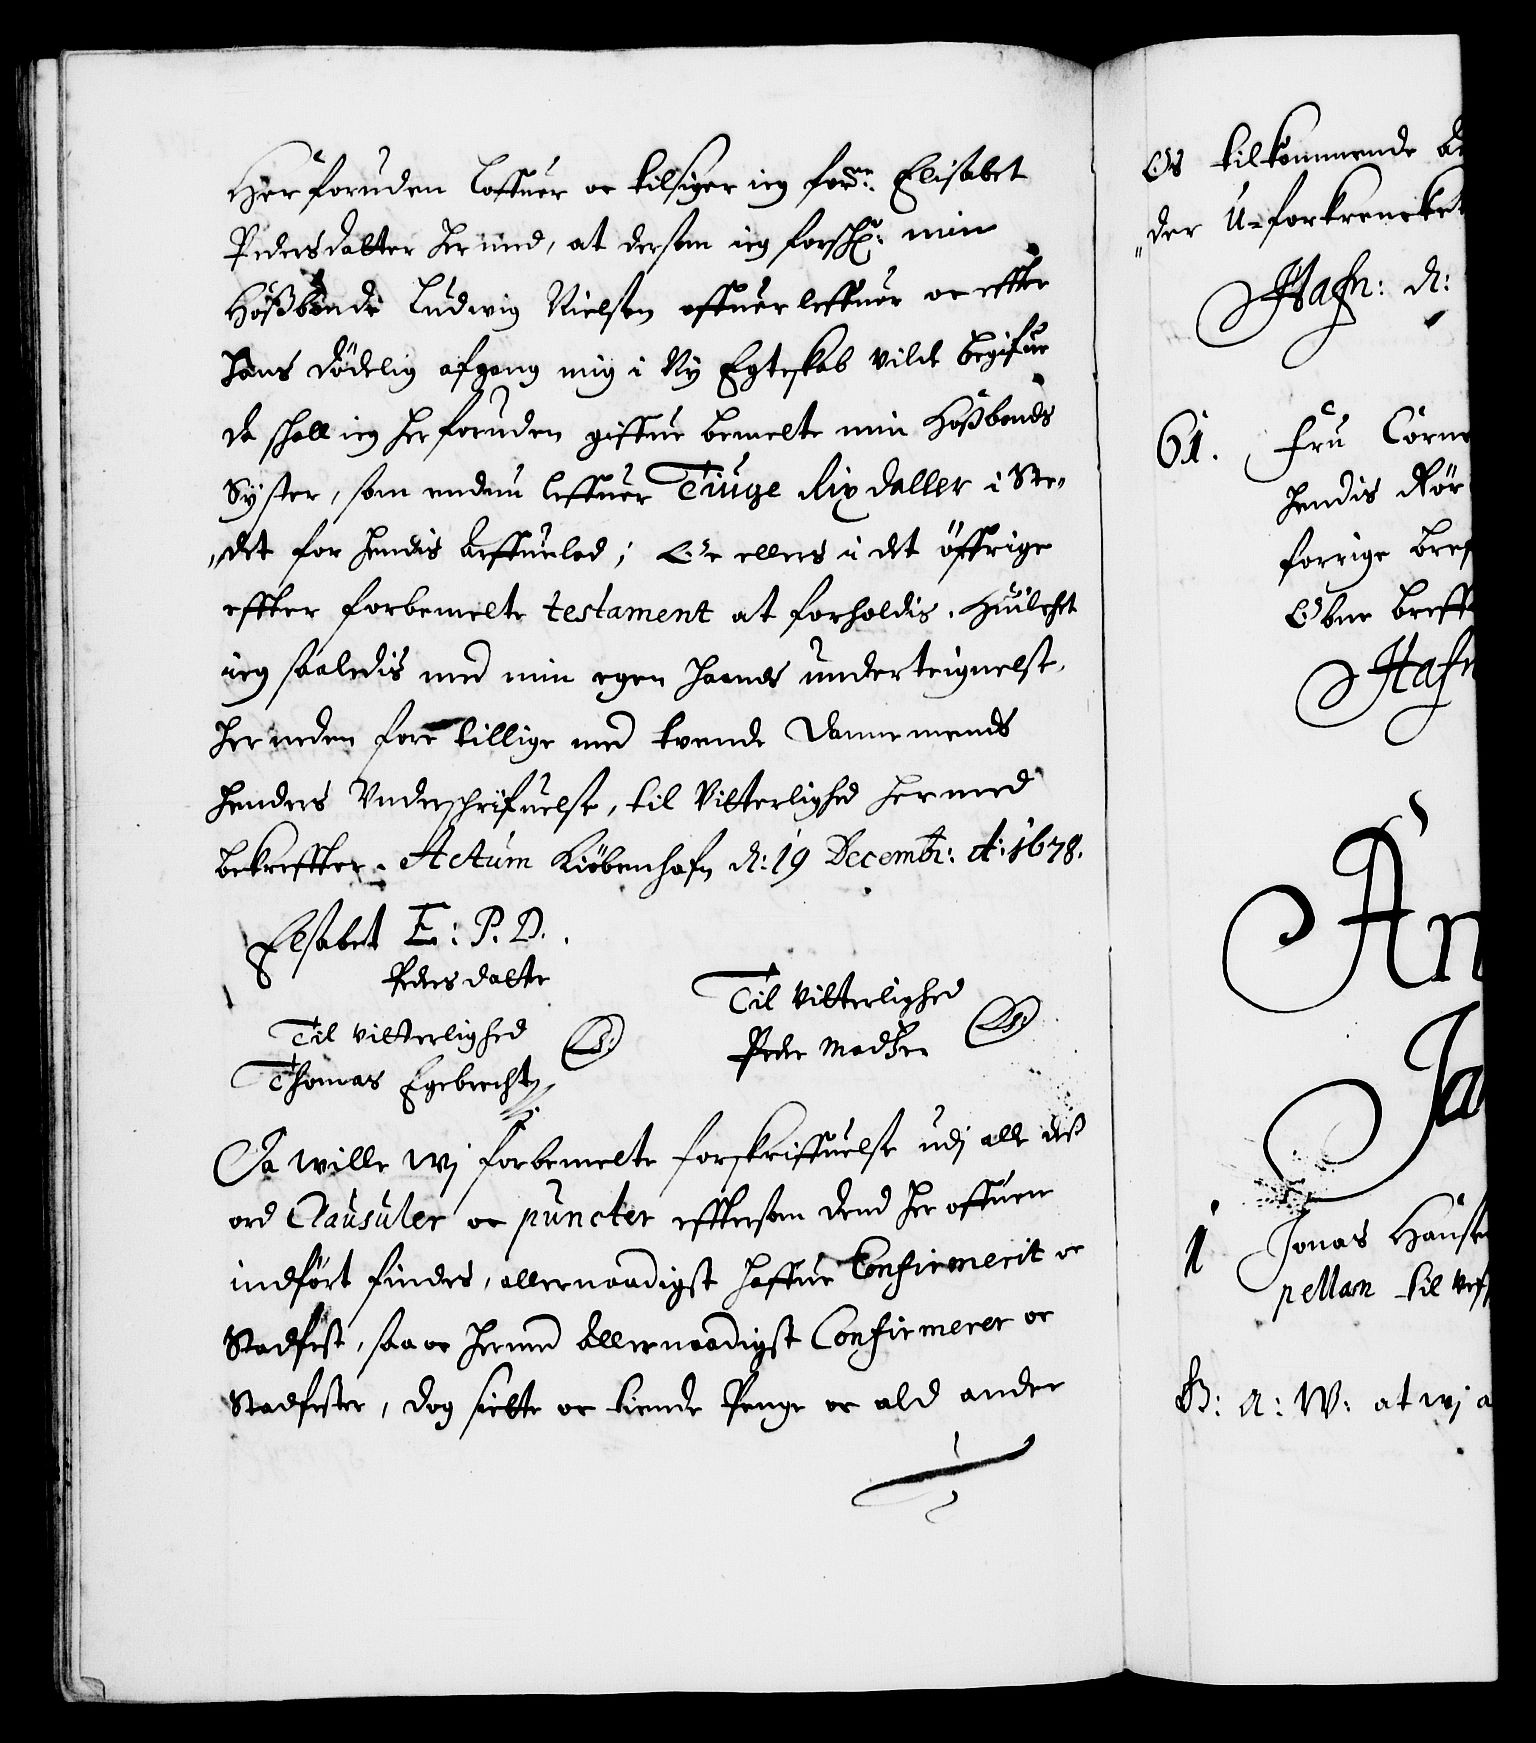 Herforuden loffuer oc tilsiger ieg for:ne Elisabet
Pedersdatter herimd, at dersom ieg forsch:ne min
Hoßbonde Ludwig Nielsen offuerleffuer oc effter
hans dödelig afgang mig i Ny Egteskab vilde begifue
da schall ieg herforuden giffue bemelte min Hoßbonds
Syster, som endnu leffuer Tiuge Rixdaller i Ste-
det for hendis Arffuelod; Oc ellers i det öffrige
effter forbemelte testament at forholdis. Huilchet
ieg saaledis med min egen haands underteignelse,
her neden fore tillige med tvende Dannemends
henders Underschrifuelse, til Vitterlighed hermed
bekreffter. Actum Kiöbenhafn d: 19 Decemb: A: 1678.
Elsabet E: P. D.
Peders datte
Til vitterlighed
Thomas Egebrecht
(L.S.)
Til Vitterlighed
Peder Madsen
(L.S.)
Da wille wj forbemelte forskriffuelse udj alle des
ord Clausuler oc puncter efftersom dend her offuen
indfört findes, allernaadigst haffue Confirmerit oc
Stadfest, saa oc hermed Allernaadigst Confirmerer oc
Stadfester, dog siette oc tiende Penge oc ald anden
Os tilkommende
der U-forkrencket
Hafn: d:
61. Fru Corn
hendis
forrige bref
Obne breff
Hafn
An
Ja
1 Jonas Hansen
pellan til
G: A: W: at wj a